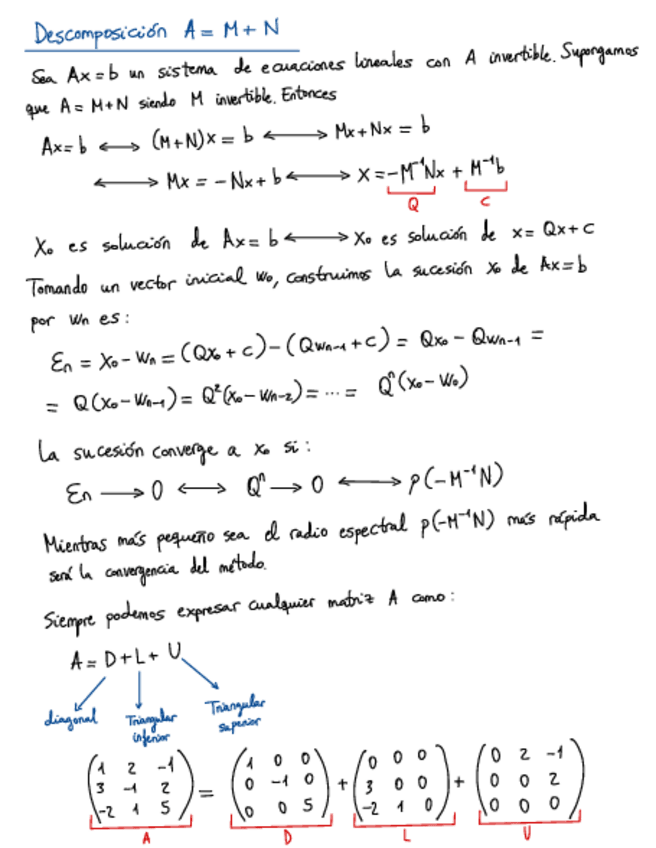 Descomposición A = M + N
Sea Ax = b un sistema de ecuaciones lineales con A invertible. Supongamos
que A = M+N siendo M invertible. Entonces
Ax = b ⟷ (M+N)x = b ⟷ Mx + Nx = b
⟷ Mx = -Nx + b ⟷ x = -M⁻¹Nx + M⁻¹b
Q C
X₀ es solución de Ax = b ⟷ X₀ es solución de x = Qx + C
Tomando un vector inicial W₀, construimos la sucesión x₀ de Ax = b
por Wn es:
Ɛn = X₀ - Wn = (QX₀ + C) - (QWn-1 + C) = QX₀ - QWn-1 =
= Q(X₀ - Wn-1) = Q²(X₀ - Wn-2) = ... = Qⁿ(X₀ - W₀)
La sucesión converge a x₀ si:
Ɛn ⟶ 0 ⟷ Qⁿ ⟶ 0 ⟷ ρ(-M⁻¹N)
Mientras más pequeño sea el radio espectral ρ(-M⁻¹N) más rápida
será la convergencia del método.
Siempre podemos expresar cualquier matriz A como:
A = D + L + U
diagonal Triangular inferior Triangular superior
1 2 -1 1 0 0 0 0 0 0 2 -1
3 -1 2 = 0 -1 0 + 3 0 0 + 0 0 2
-2 1 5 0 0 5 -2 1 0 0 0 0
A D L U